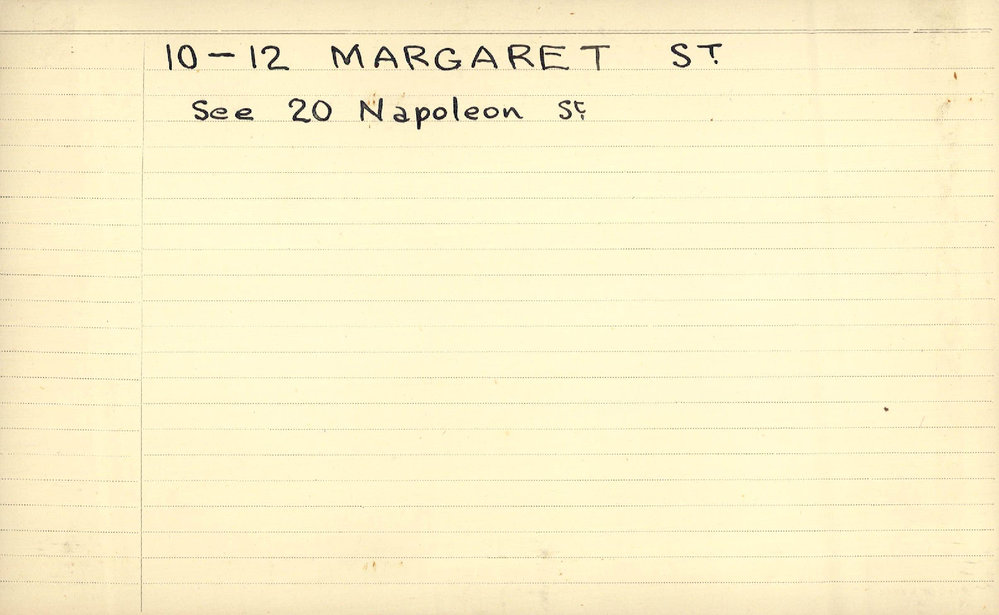 10-12 MARGARET ST.
See 20 Napoleon St.